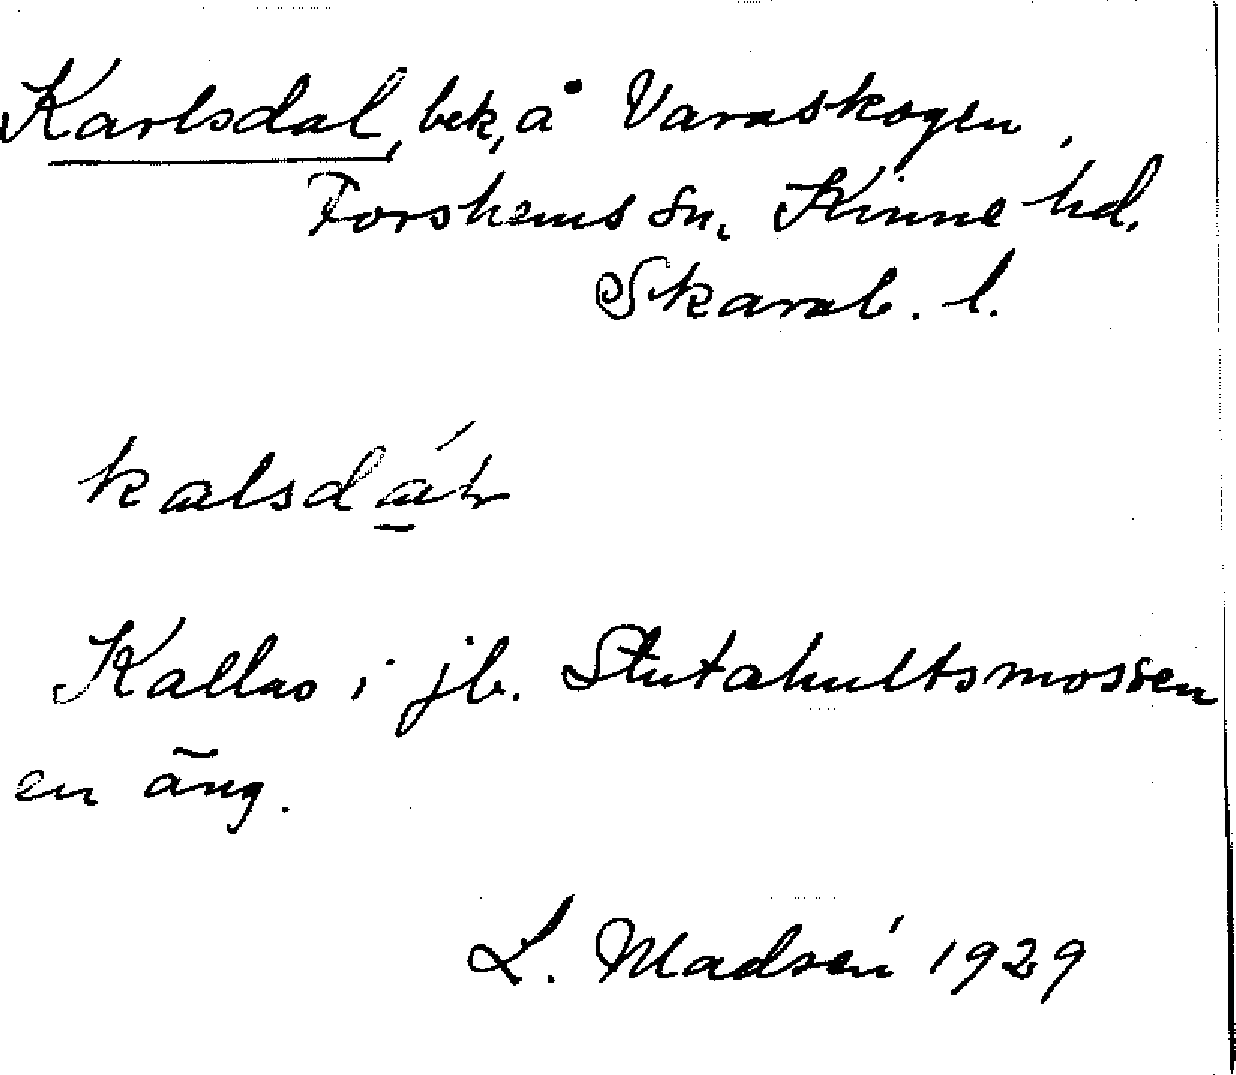 Karlsdal, bek, å Varaskogen,
Forshems sn, Kinne hd.
Skarab. l.
kalsdá̱l
Kallas i jb. Stutahultsmossen
en äng.
L. Madsén 1929